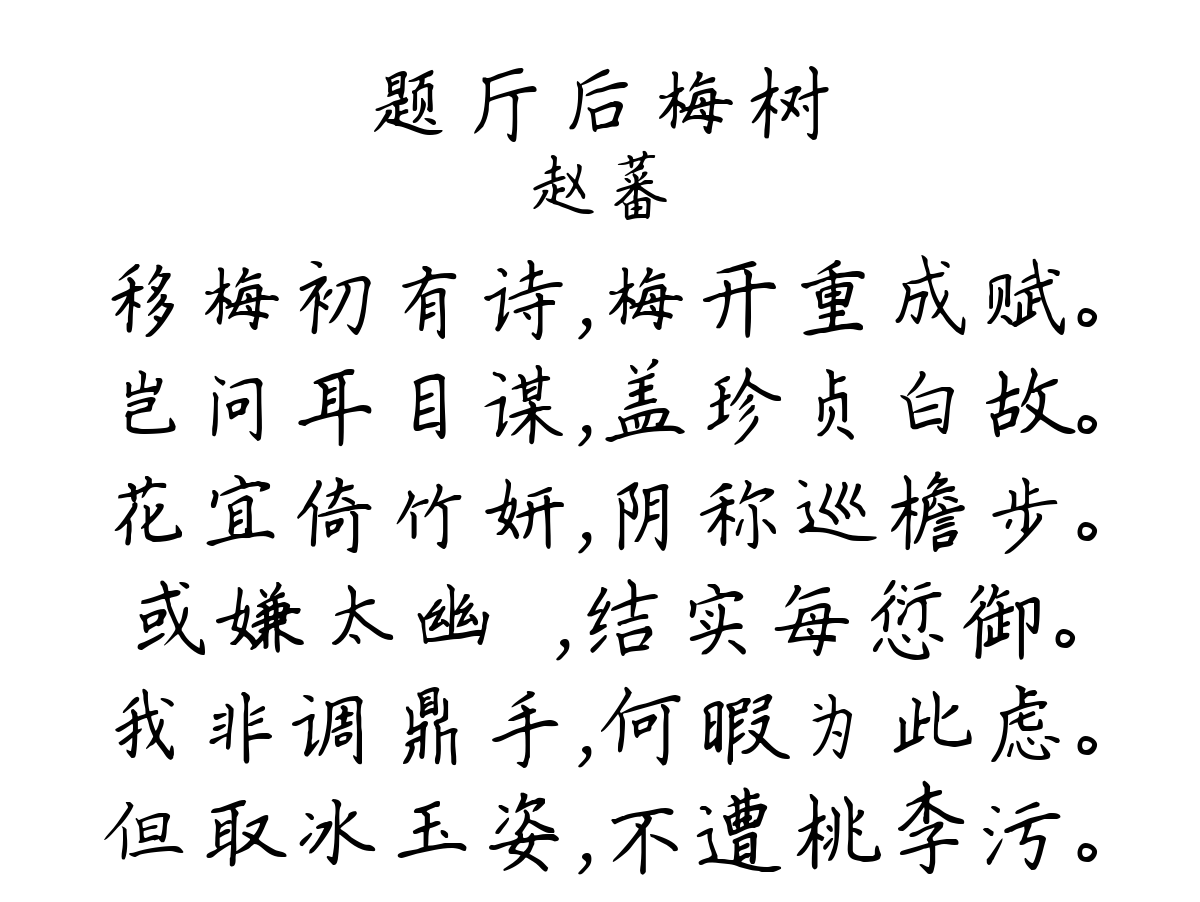 题厅后梅树
赵蕃
移梅初有诗,梅开重成赋。
岂问耳目谋,盖珍贞白故。
花宜倚竹妍,阴称巡檐步。
或嫌太幽 ,结实每愆御。
我非调鼎手,何暇为此虑。
但取冰玉姿,不遭桃李污。